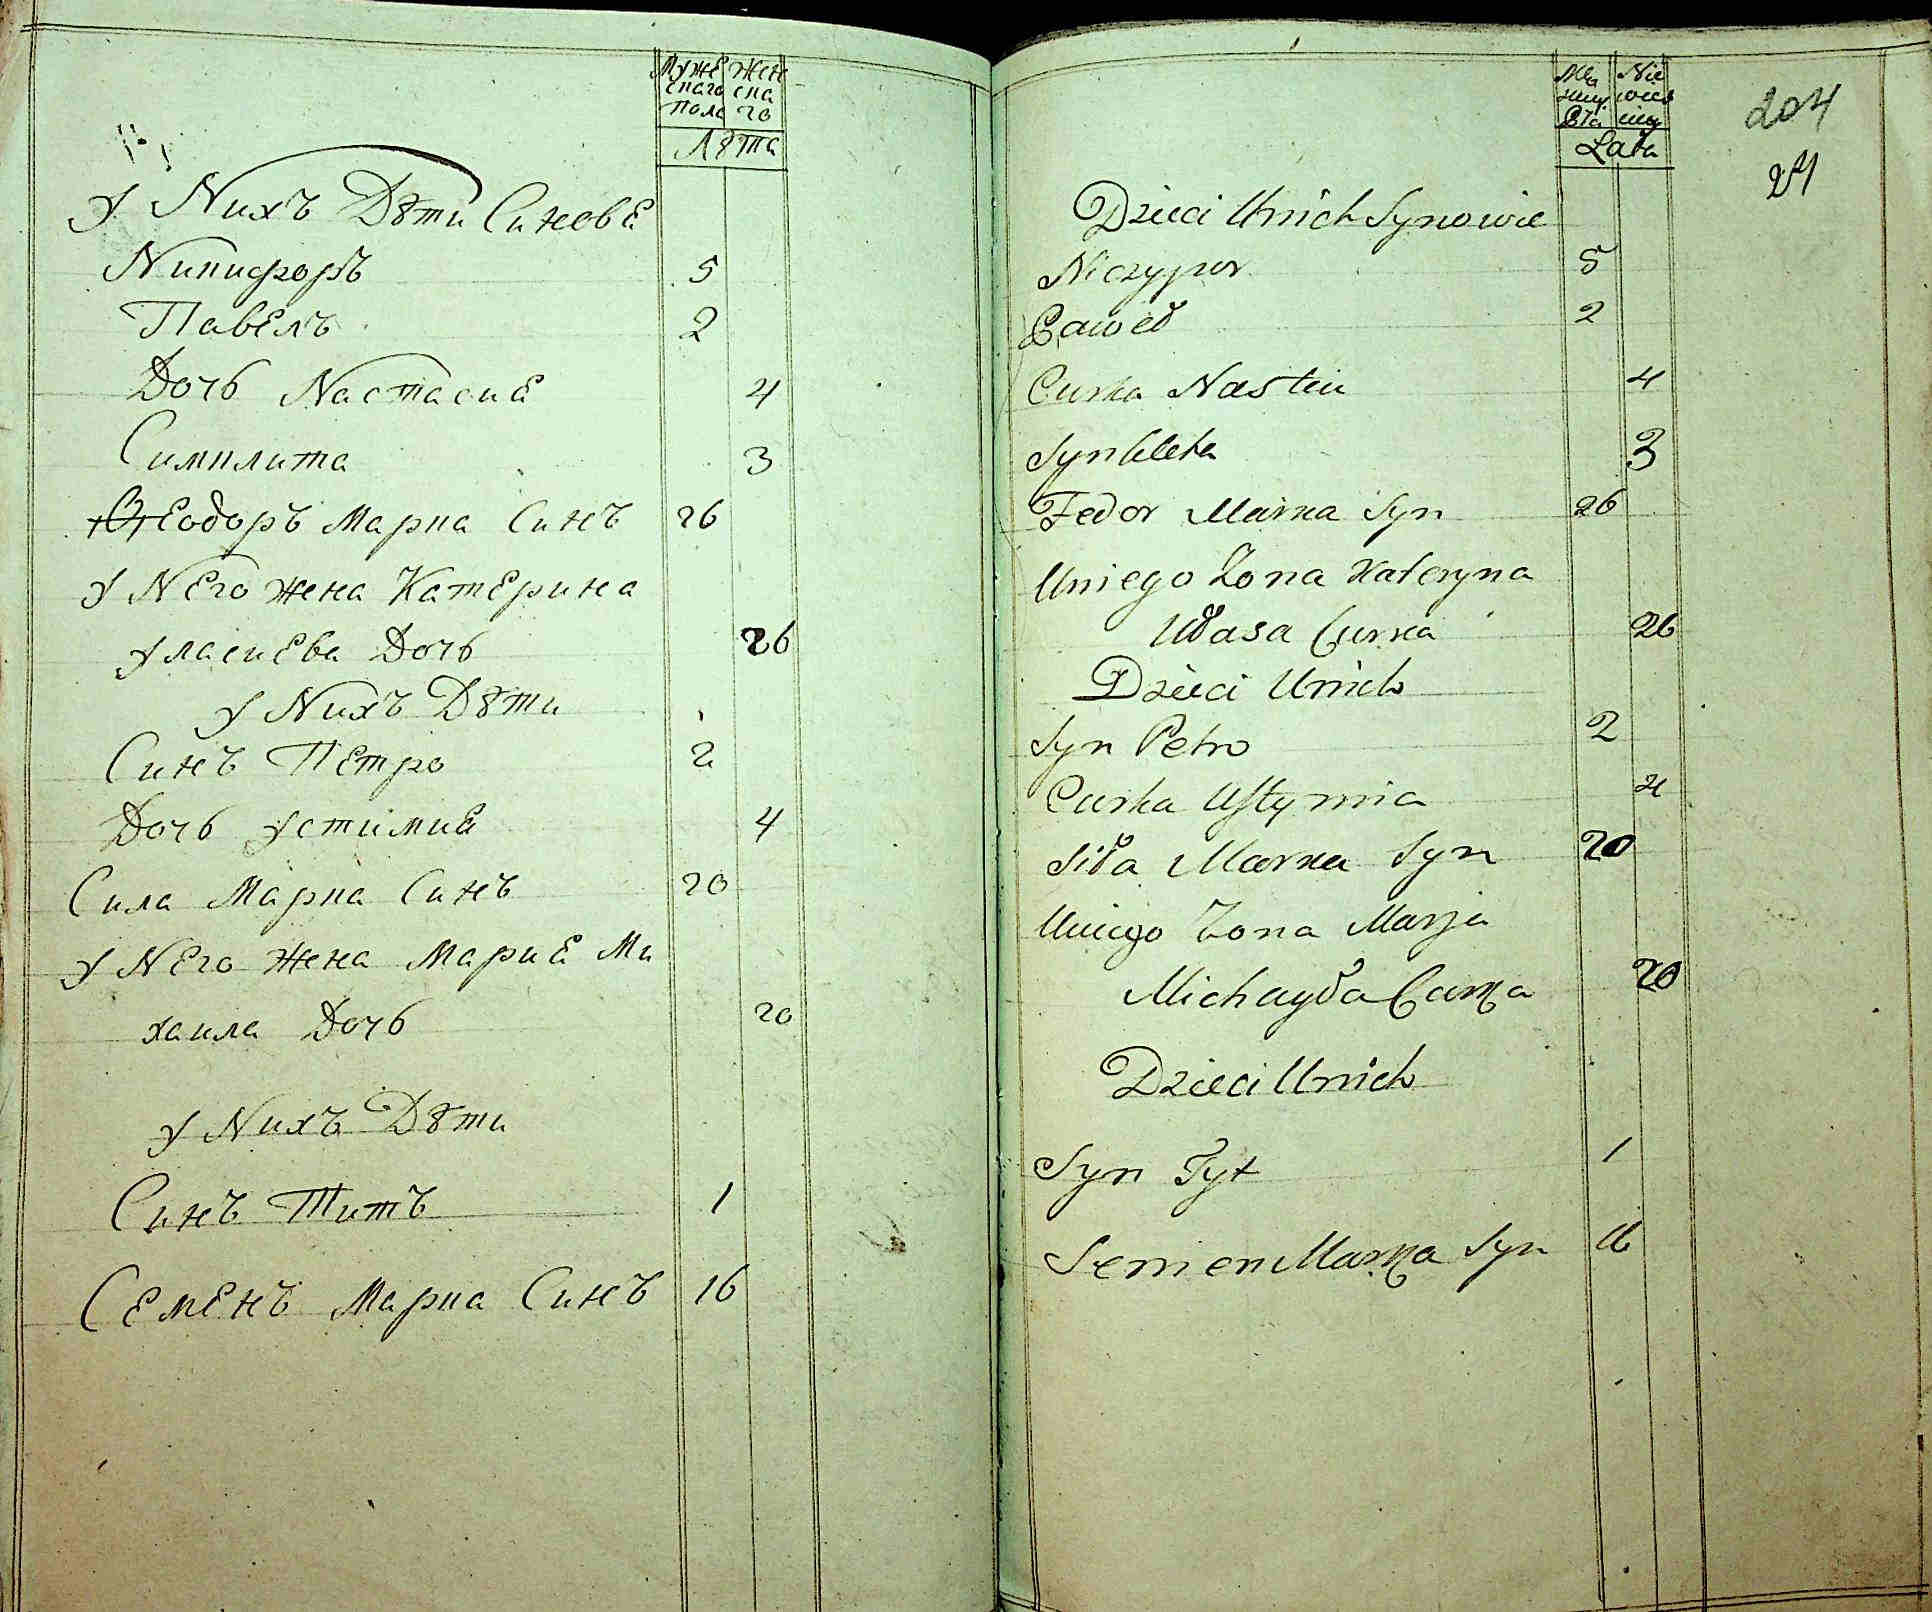 Мужескаго пола Женскаго
Лѣта
У Nихъ Dѣти Синовѣ
Nикифоръ 5
Павелъ 2
Дочь Nастасиѣ 4
Симклита 3
Ѳеодоръ Марка Синъ 26
У Nего жена Катерина
Уласиева Дочь 26
У Nихъ Dѣти
Синъ Петро 2
Дочь Устимиѣ 4
Сила Марка Синъ 20
У Nего жена Мариѣ Ми
хаила Дочь 20
У Nихъ Dѣти
Синъ Титъ 1
Семенъ Марка Синъ 16
Lata
204
24
Dzieci Unich Synowie
Niczypor 5
Paweł 2
Curka Nastiu 4
Synkleta 3
Fedor Marka Syn 26
Uniego Zona Kateryna
Ułasa Curka 26
Dzieci Unich
Syn Petro 2
Curka Ustymia 4
Siła Marka Syn 20
Uniego Zona Marja
Michayła Curka 20
Dzieci Unich
Syn Tyt 1
Semen Marka Syn 16